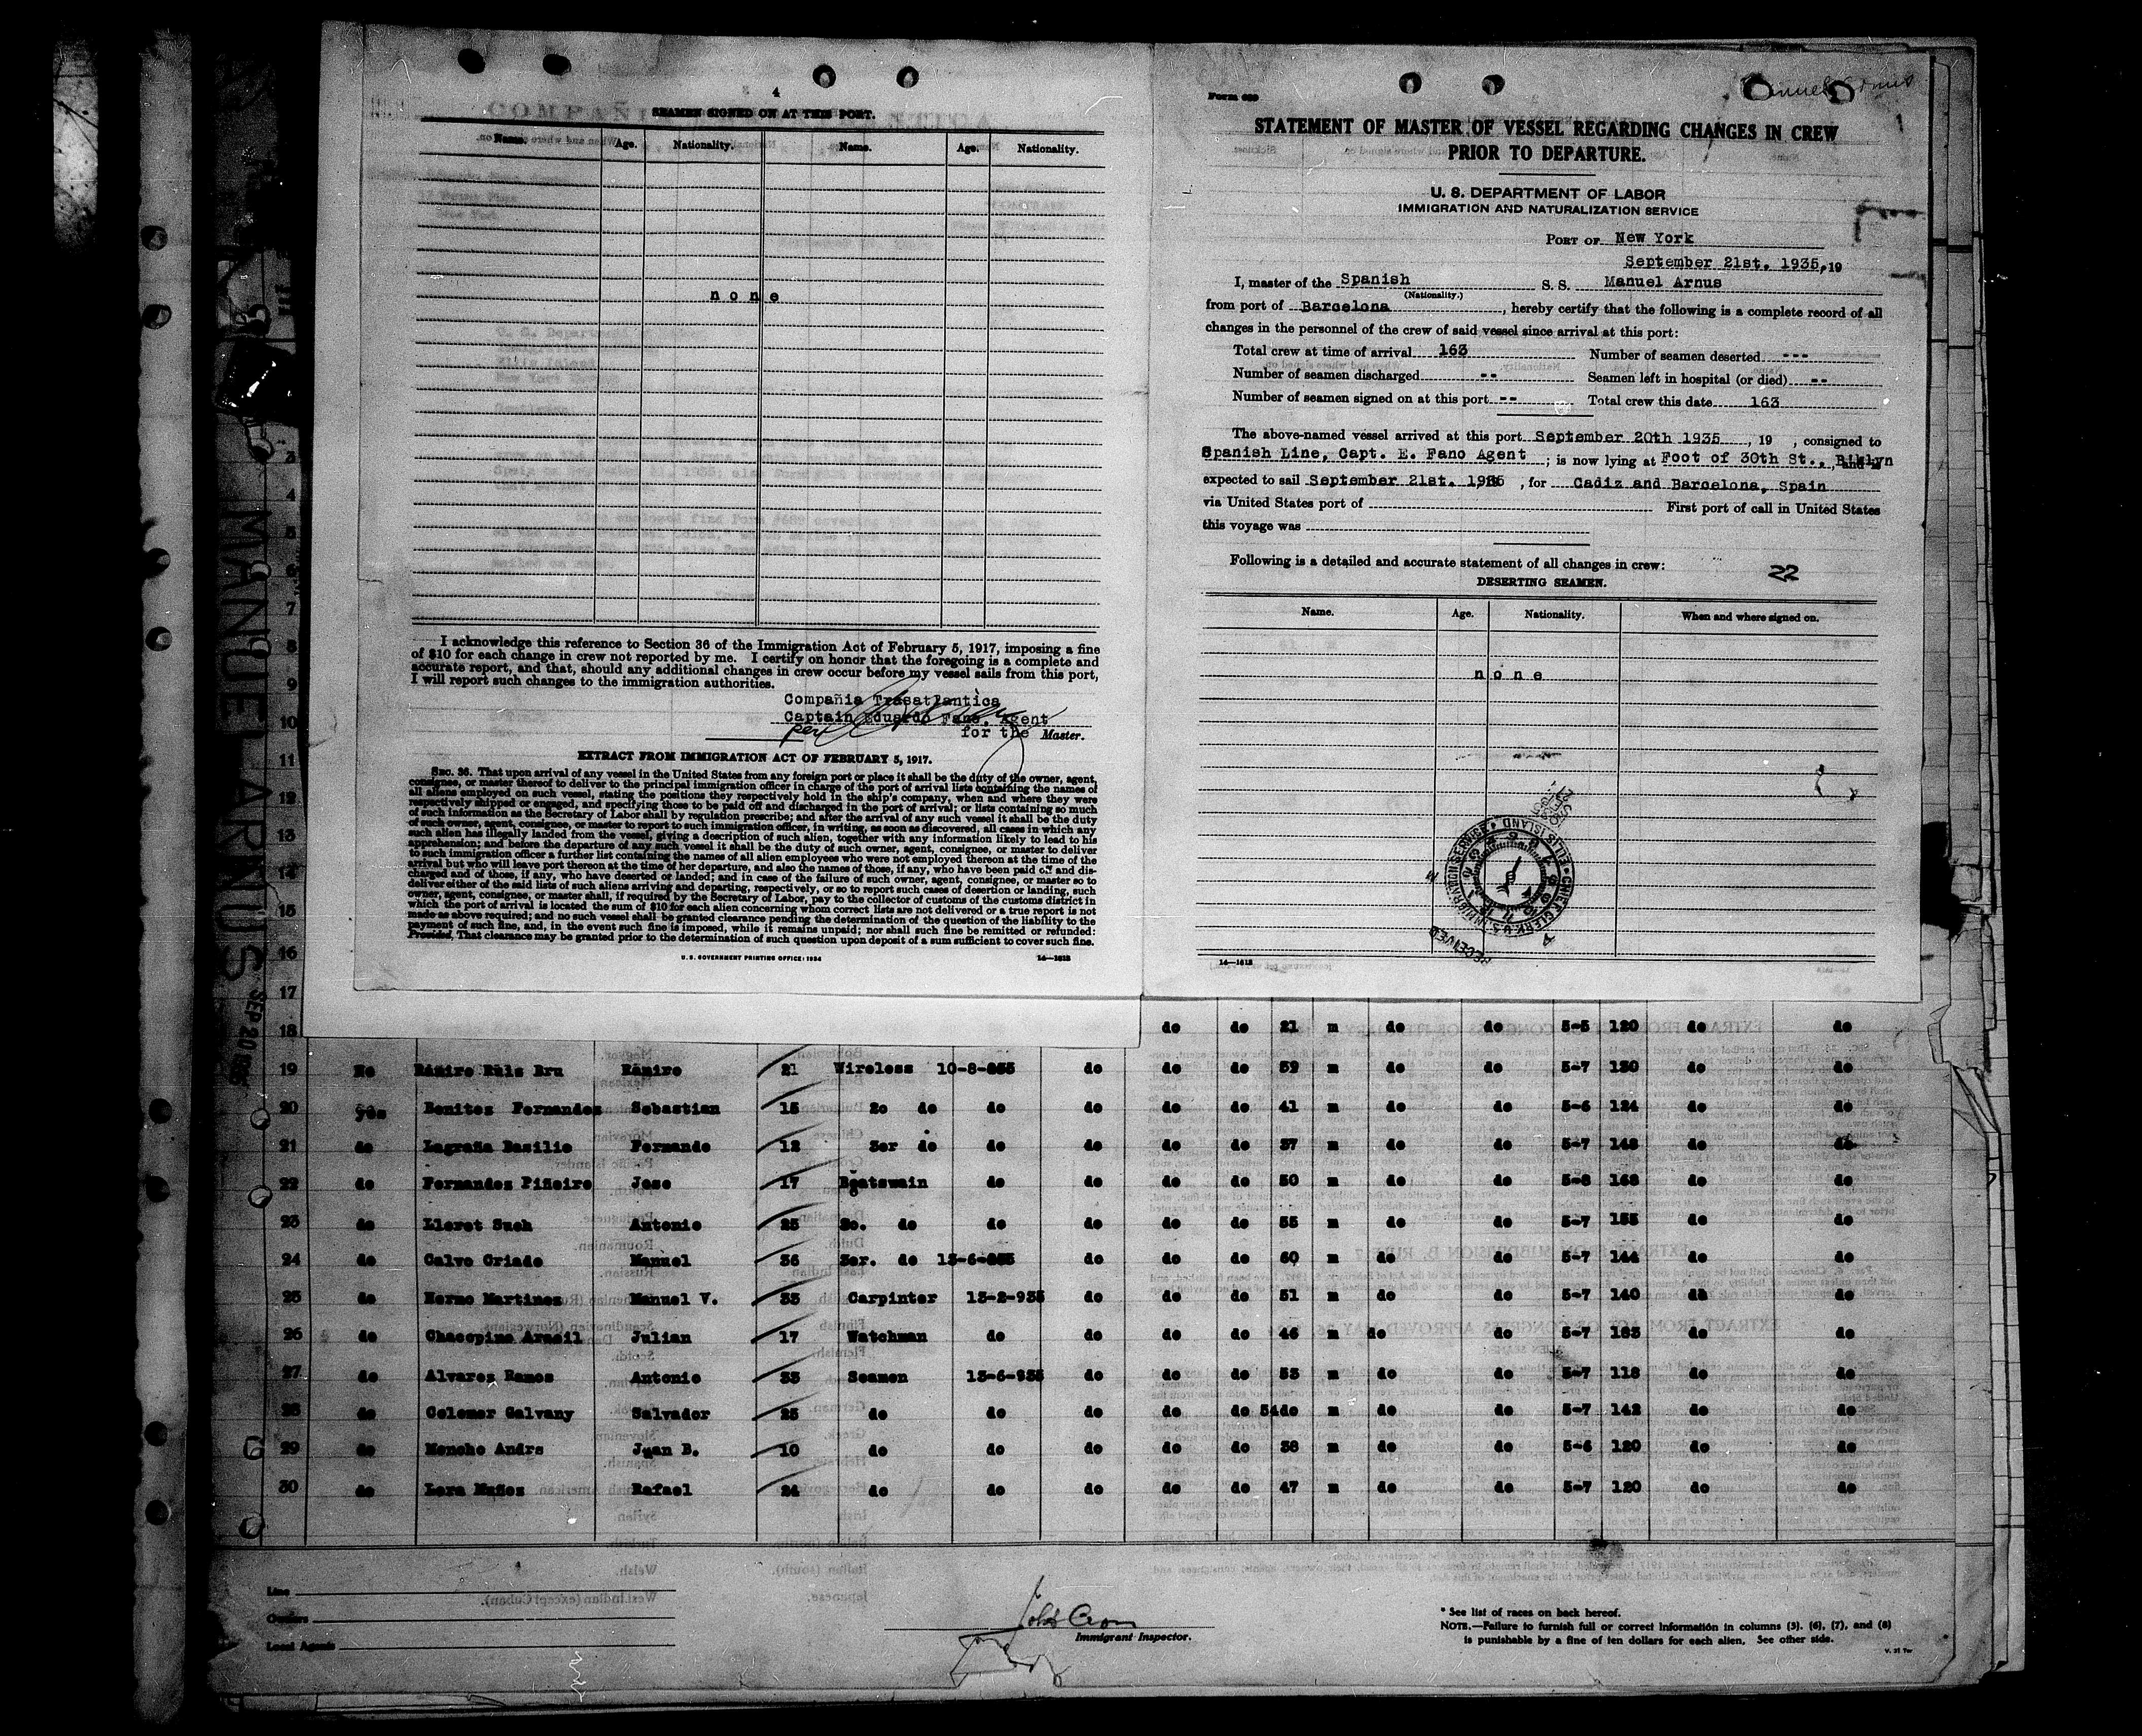 4
SEAMEN SIGNED ON AT THIS PORT.
Name. Age. Nationality. Name. Age. Nationality.
none
I acknowledge this reference to Section 36 of the Immigration Act of February 5, 1917, imposing a fine
of $10 for each change in crew not reported by me. I certify on honor that the foregoing is a complete and
accurate report, and that, should any additional changes in crew occur before my vessel sails from this port,
I will report such changes to the immigration authorities.
Compañia Trasatlantica
Captain Eduardo Fano, Agent
per for the Master.
EXTRACT FROM IMMIGRATION ACT OF FEBRUARY 5, 1917.
SEC. 36. That upon arrival of any vessel in the United States from any foreign port or place it shall be the duty of the owner, agent,
consignee, or master thereof to deliver to the principal immigration officer in charge of the port of arrival lists containing the names of
all aliens employed on such vessel, stating the positions they respectively hold in the ship's company, when and where they were
respectively shipped or engaged, and specifying those to be paid off and discharged in the port of arrival; or lists containing so much
of such information as the Secretary of Labor shall by regulation prescribe; and after the arrival of any such vessel it shall be the duty
of such owner, agent, consignee, or master to report to such immigration officer, in writing, as soon as discovered, all cases in which any
such alien has illegally landed from the vessel, giving a description of such alien, together with any information likely to lead to his
apprehension; and before the departure of any such vessel it shall be the duty of such owner, agent, consignee, or master to deliver
to such immigration officer a further list containing the names of all alien employees who were not employed thereon at the time of the
arrival but who will leave port thereon at the time of her departure, and also the names of those, if any, who have been paid off and dis-
charged and of those, if any, who have deserted or landed; and in case of the failure of such owner, agent, consignee, or master so to
deliver either of the said lists of such aliens arriving and departing, respectively, or so to report such cases of desertion or landing, such
owner, agent, consignee, or master shall, if required by the Secretary of Labor, pay to the collector of customs of the customs district in
which the port of arrival is located the sum of $10 for each alien concerning whom correct lists are not delivered or a true report is not
made as above required; and no such vessel shall be granted clearance pending the determination of the question of the liability to the
payment of such fine, and, in the event such fine is imposed, while it remains unpaid; nor shall such fine be remitted or refunded:
Provided, That clearance may be granted prior to the determination of such question upon deposit of a sum sufficient to cover such fine.
U. S. GOVERNMENT PRINTING OFFICE: 1934 14—1613
Form 689
STATEMENT OF MASTER OF VESSEL REGARDING CHANGES IN CREW
PRIOR TO DEPARTURE.
U. S. DEPARTMENT OF LABOR
IMMIGRATION AND NATURALIZATION SERVICE
PORT OF New York
September 21st. 1935, 19
I, master of the Spanish S. S. Manuel Arnus
(Nationality.)
from port of Barcelona, hereby certify that the following is a complete record of all
changes in the personnel of the crew of said vessel since arrival at this port:
Total crew at time of arrival 163 Number of seamen deserted ---
Number of seamen discharged -- Seamen left in hospital (or died) --
Number of seamen signed on at this port -- Total crew this date 163
The above-named vessel arrived at this port September 20th 1935, 19 , consigned to
Spanish Line, Capt. E. Fano Agent; is now lying at Foot of 30th St., Bklyn and is
expected to sail September 21st. 1935, for Cadiz and Barcelona, Spain
via United States port of First port of call in United States
this voyage was
Following is a detailed and accurate statement of all changes in crew:
22
DESERTING SEAMEN.
Name. Age. Nationality. When and where signed on.
none
RECEIVED CHIEF CLERK U.S. IMMIGRATION SERVICE ELLIS ISLAND
14—1613
MANUEL ARNUS SEP 20 1935
3
4
5
6
7
8
9
10
11
12
13
14
15
16
17
18 do do 21 m do do 5-5 120 do do
19 No Ramiro Ruls Bru Ramiro 21 Wireless 10-8-935 do do 52 m do do 5-7 130 do do
20 yes Benitez Fernandez Sebastian 15 2o do do do do 41 m do do 5-6 124 do do
21 do Lagraña Basilio Fernando 12 3er do do do do 37 m do do 5-7 148 do do
22 do Fernandez Piñeiro Jose 17 Boatswain do do do 50 m do do 5-8 168 do do
23 do Lloret Such Antonio 25 2o. do do do do 55 m do do 5-7 155 do do
24 do Calvo Criado Manuel 36 3er. do 13-6-935 do do 60 m do do 5-7 144 do do
25 do Hermo Martinez Manuel V. 33 Carpinter 13-2-935 do do 51 m do do 5-7 140 do do
26 do Chacopino Arasil Julian 17 Watchman do do do 46 m do do 5-7 183 do do
27 do Alvarez Ramos Antonio 33 Seamen 13-6-935 do do 53 m do do 5-7 118 do do
28 do Colomer Galvany Salvador 25 do do do do 54do m do do 5-7 142 do do
29 do Moncho Andrs Juan B. 10 do do do do 38 m do do 5-6 120 do do
30 do Lora Muñoz Rafael 24 do do do do 47 m do do 5-7 120 do do
Line
Owners
Local Agents
Immigrant Inspector.
* See list of races on back hereof.
NOTE.—Failure to furnish full or correct information in columns (3), (6), (7), and (8)
is punishable by a fine of ten dollars for each alien. See other side.